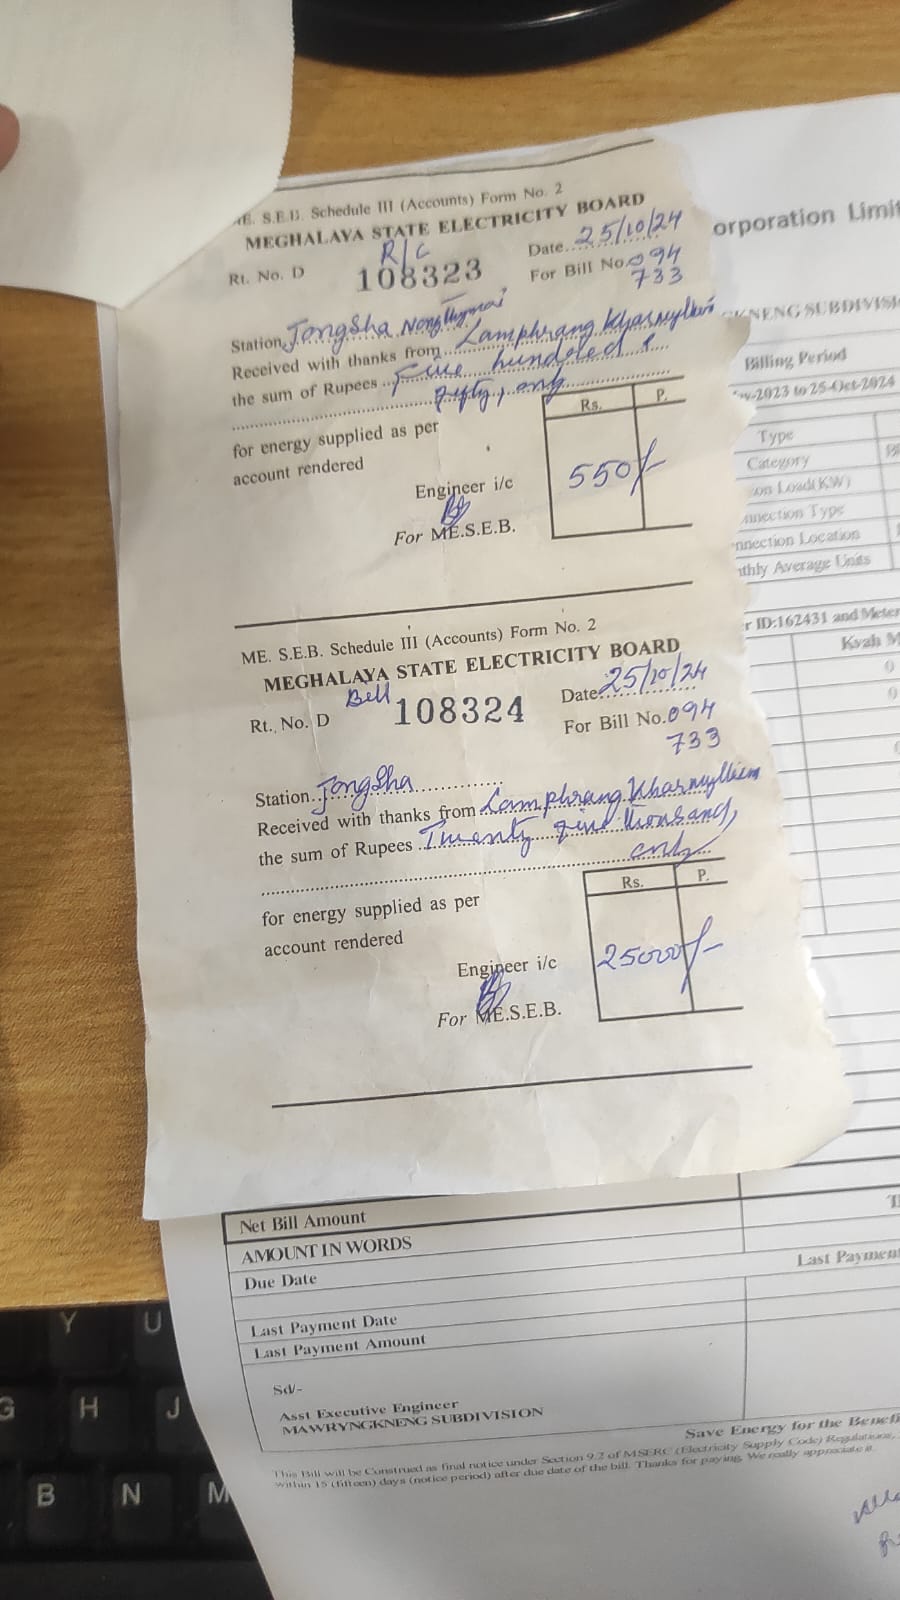 ME. S.E.B. Schedule III (Accounts) Form No. 2
MEGHALAYA STATE ELECTRICITY BOARD
R/C
Rt. No. D 108323
Date 25/10/24
For Bill No. 094
733
Station Jongsha Nongthymai
Received with thanks from Lamphrang Kharnylliem
the sum of Rupees Five hundred &
fifty, only
for energy supplied as per
account rendered
Rs. P.
550/-
Engineer i/c
For ME.S.E.B.
ME. S.E.B. Schedule III (Accounts) Form No. 2
MEGHALAYA STATE ELECTRICITY BOARD
Bill
Rt. No. D 108324
Date 25/10/24
For Bill No. 094
733
Station Jongsha
Received with thanks from Lamphrang Kharnylliem
the sum of Rupees Twenty five thousand,
only
for energy supplied as per
account rendered
Rs. P.
25000/-
Engineer i/c
For ME.S.E.B.
orporation Limit
KNENG SUBDIVISI
Billing Period
-2023 to 25-Oct-2024
Type
Category
on Load(KW)
nnection Type
nnection Location
thly Average Units
r ID:162431 and Meter
Kvah M
Net Bill Amount
AMOUNT IN WORDS
Due Date
Last Payment
Last Payment Date
Last Payment Amount
Sd/-
Asst Executive Engineer
MAWRYNGKNENG SUBDIVISION
Save Energy for the Benefi
This Bill will be Construed as final notice under Section 9.2 of MSERC (Electricity Supply Code) Regulations,
within 15 (fifteen) days (notice period) after due date of the bill. Thanks for paying. We really appreciate it.
Y U
G H J
B N M